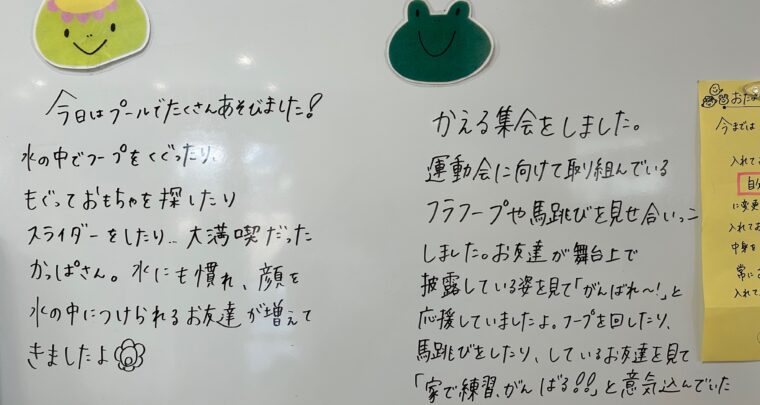 今日はプールでたくさんあそびました!
水の中でフープをくぐったり、
もぐっておもちゃを探したり
スライダーをしたり… 大満喫だった
かっぱさん。水にも慣れ、顔を
水の中につけられるお友達が増えて
きましたよ
かえる集会をしました。
運動会に向けて取り組んでいる
フラフープや馬跳びを見せ合いっこ
しました。お友達が舞台上で
披露している姿を見て「がんばれ〜!」と
応援していましたよ。フープを回したり、
馬跳びをしたり、しているお友達を見て
「家で練習、がんばる!!」と意気込んでいた
今までは
入れて
自分
に変更
入れてお
中身を
常に
入れて